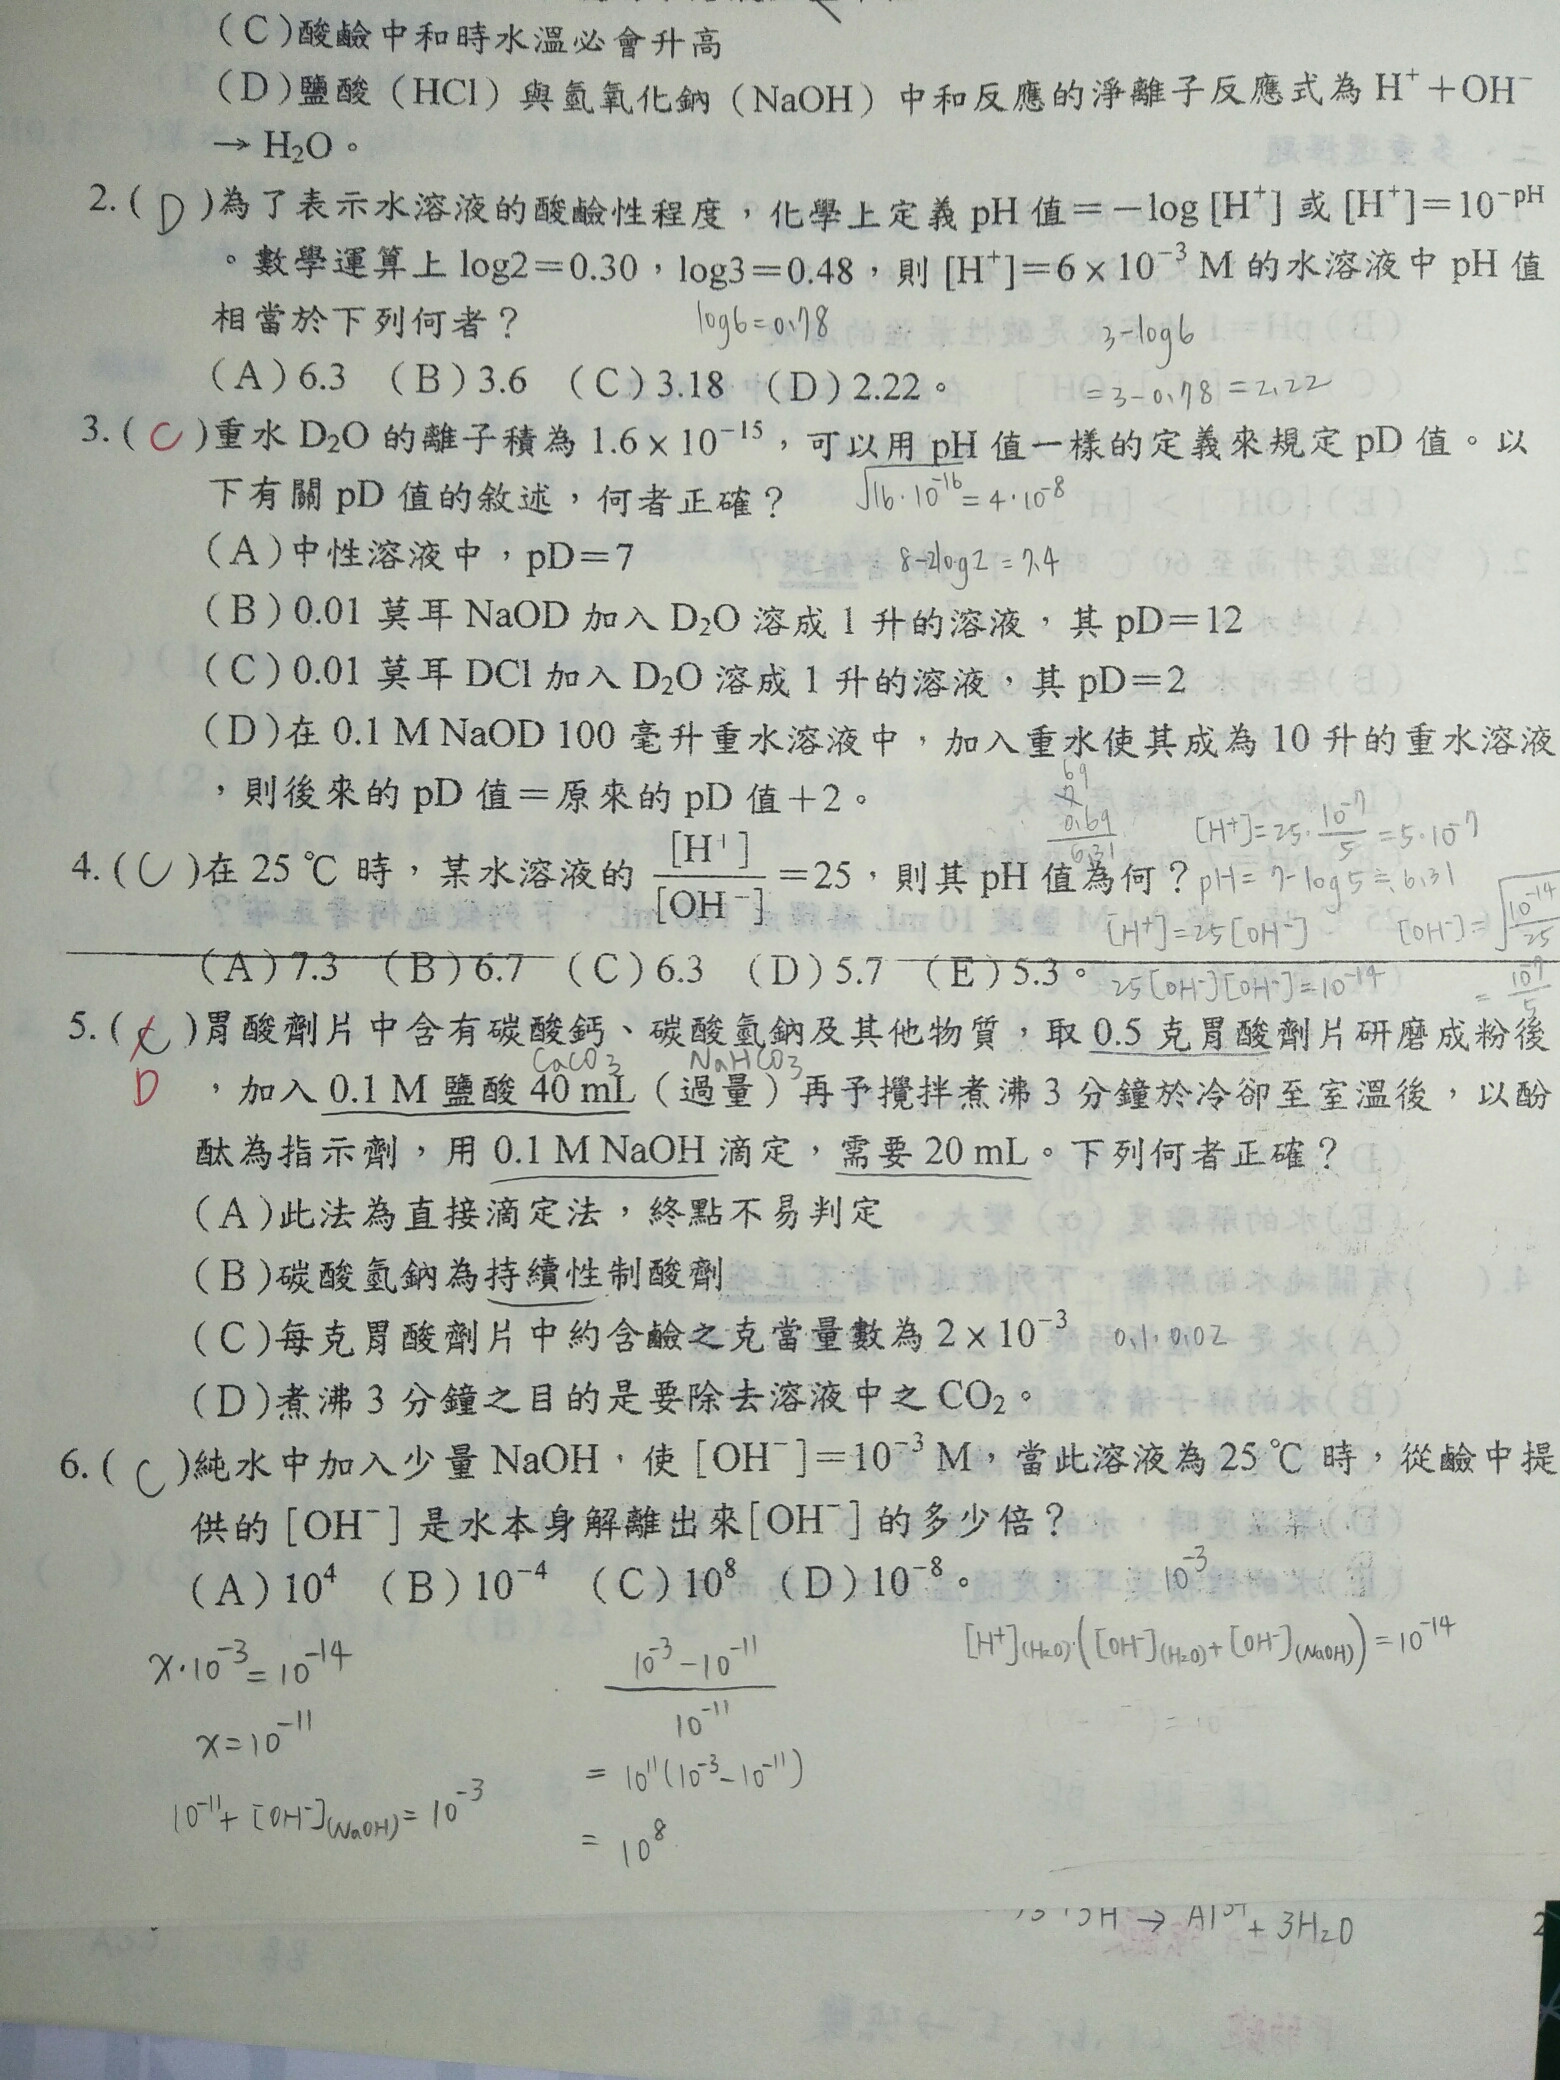 (C)酸鹼中和時水溫必會升高
(D)鹽酸（HCl）與氫氧化鈉（NaOH）中和反應的淨離子反應式為 H⁺＋OH⁻
→ H₂O。
2.( D )為了表示水溶液的酸鹼性程度，化學上定義 pH 值＝－log [H⁺] 或 [H⁺]＝10⁻ᵖᴴ
。數學運算上 log2＝0.30，log3＝0.48，則 [H⁺]＝6×10⁻³ M 的水溶液中 pH 值
相當於下列何者？
log6=0.78
3-log6
(A)6.3 (B)3.6 (C)3.18 (D)2.22。
=3-0.78=2.22
3.( C )重水 D₂O 的離子積為 1.6×10⁻¹⁵，可以用 pH 值一樣的定義來規定 pD 值。以
下有關 pD 值的敘述，何者正確？
√16·10⁻¹⁶=4·10⁻⁸
(A)中性溶液中，pD＝7
8-2log2=7.4
(B)0.01 莫耳 NaOD 加入 D₂O 溶成 1 升的溶液，其 pD＝12
(C)0.01 莫耳 DCl 加入 D₂O 溶成 1 升的溶液，其 pD＝2
(D)在 0.1 M NaOD 100 毫升重水溶液中，加入重水使其成為 10 升的重水溶液
，則後來的 pD 值＝原來的 pD 值＋2。
0.69
6.31
[H⁺]=25·10⁻⁷/5=5·10⁻⁷
4.( C )在 25 ℃ 時，某水溶液的 [H⁺]/[OH⁻]＝25，則其 pH 值為何？
pH=7-log5≒6.31
[H⁺]=25[OH⁻]
[OH⁻]=√10⁻¹⁴/25
(A)7.3 (B)6.7 (C)6.3 (D)5.7 (E)5.3。
25[OH⁻][OH⁻]=10⁻¹⁴
=10⁻⁷/5
5.( C )胃酸劑片中含有碳酸鈣、碳酸氫鈉及其他物質，取 0.5 克胃酸劑片研磨成粉後
CaCO₃ NaHCO₃
D
，加入 0.1 M 鹽酸 40 mL（過量）再予攪拌煮沸 3 分鐘於冷卻至室溫後，以酚
酞為指示劑，用 0.1 M NaOH 滴定，需要 20 mL。下列何者正確？
(A)此法為直接滴定法，終點不易判定
(B)碳酸氫鈉為持續性制酸劑
(C)每克胃酸劑片中約含鹼之克當量數為 2×10⁻³
0.1·0.02
(D)煮沸 3 分鐘之目的是要除去溶液中之 CO₂。
6.( C )純水中加入少量 NaOH，使 [OH⁻]＝10⁻³ M，當此溶液為 25 ℃ 時，從鹼中提
供的 [OH⁻] 是水本身解離出來[OH⁻] 的多少倍？
(A)10⁴ (B)10⁻⁴ (C)10⁸ (D)10⁻⁸。
10⁻³
[H⁺](H₂O)·([OH⁻](H₂O)+[OH⁻](NaOH))=10⁻¹⁴
x·10⁻³=10⁻¹⁴
x=10⁻¹¹
10⁻¹¹+[OH⁻](NaOH)=10⁻³
10⁻³-10⁻¹¹
10⁻¹¹
=10¹¹(10⁻³-10⁻¹¹)
=10⁸
→ Al³⁺+3H₂O